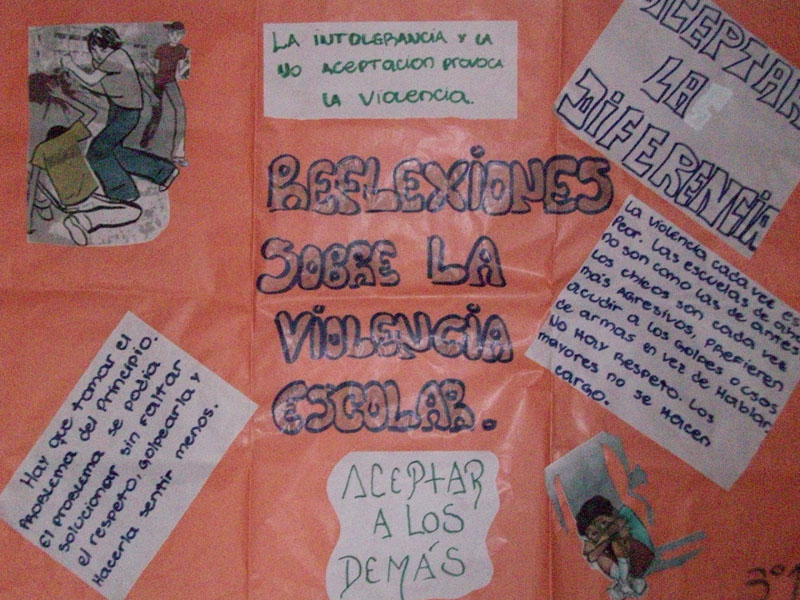 LA INTOLERANCIA Y LA
NO ACEPTACION PROVOCA
LA VIOLENCIA.
ACEPTAR
LAS
DIFERENCIA
REFLEXIONES
SOBRE LA
VIOLENCIA
ESCOLAR.
La violencia cada vez es
peor. Las escuelas de
no son como las de antes
Los chicos son cada vez
más agresivos, prefieren
acudir a los golpes o usos
de armas en vez de hablar.
No hay respeto. Los
mayores no se hacen
cargo.
Hay que tomar el
problema del principio.
El problema se podia
solucionar sin faltar
el respeto, golpearla y
hacerla sentir menos.
ACEPTAR
A LOS
DEMÁS